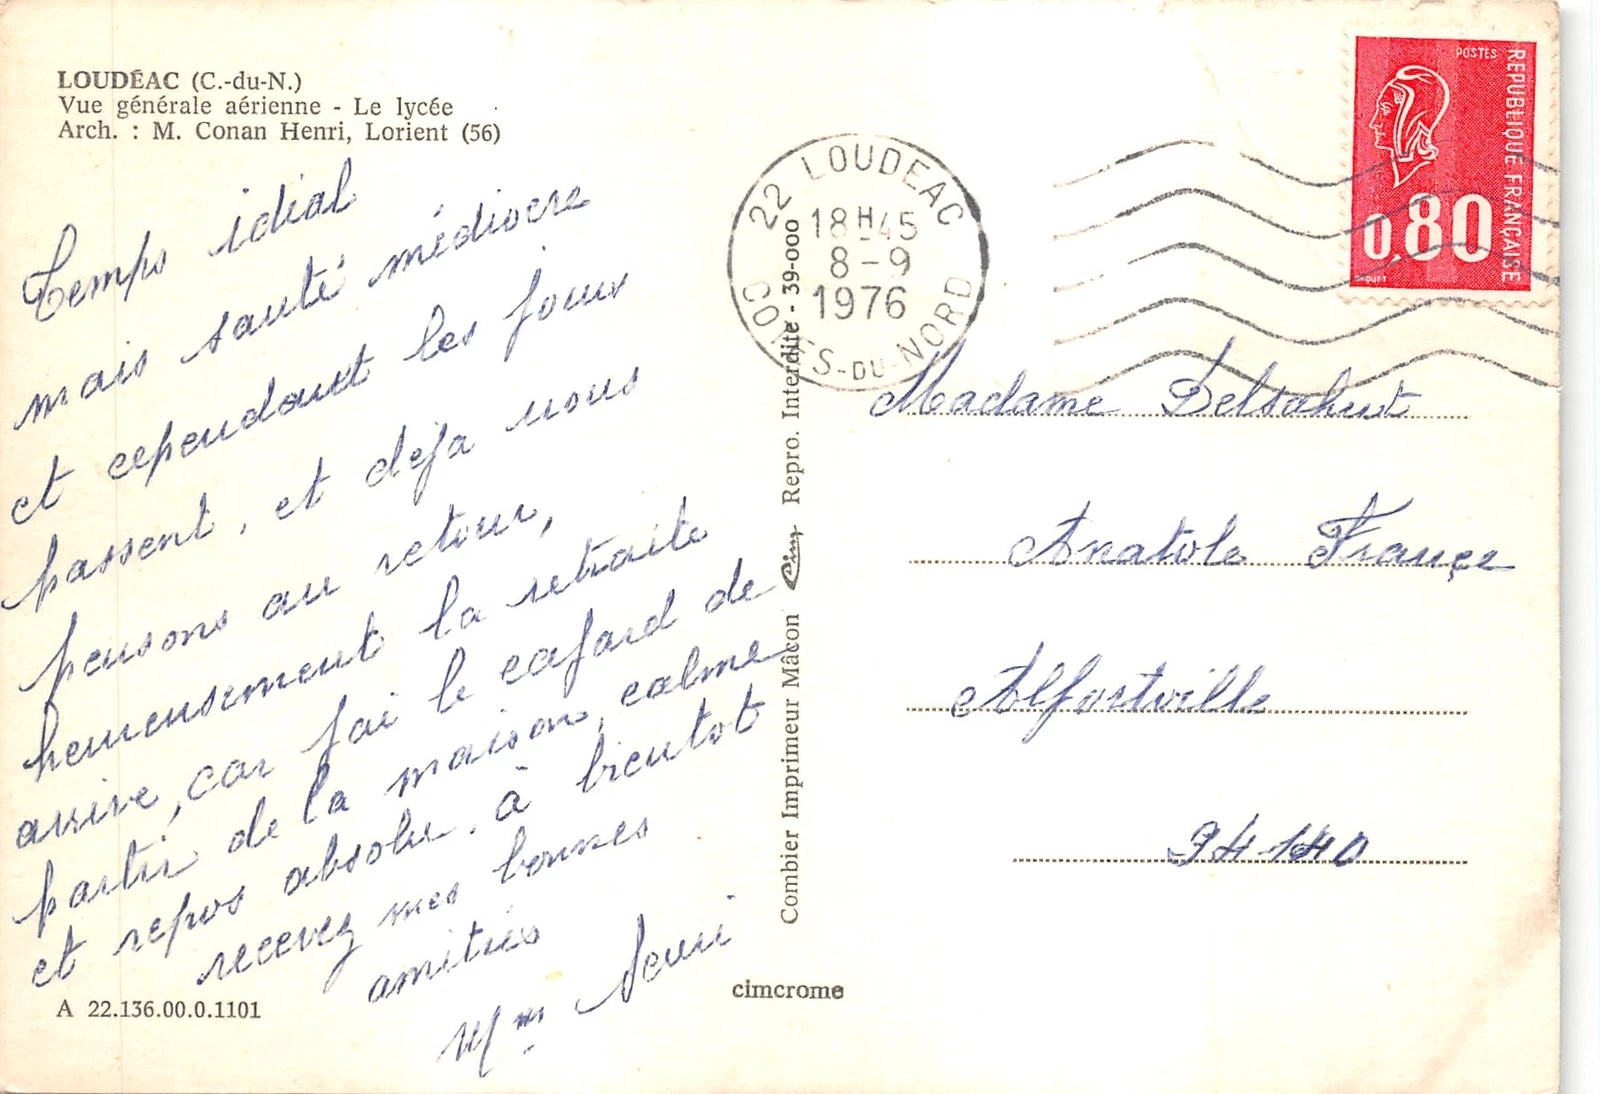 LOUDÉAC (C.-du-N.)
Vue générale aérienne - Le lycée
Arch. : M. Conan Henri, Lorient (56)
Temps idial
mais santé médiocre
et cependant les jours
passent, et deja nous
pensons au retour,
heureusement la retraite
arrive, car j'ai le cafard de
partir de la maison, calme
et repos absolu. à bientot
recevez mes bonnes
amitiés
Mme
A 22.136.00.0.1101
cimcrome
Combier Imprimeur Mâcon Cim Repro. Interdite - 39-000
22 LOUDEAC
18H45
8-9
1976
COTES-DU-NORD
POSTES
REPUBLIQUE FRANÇAISE
0,80
Madame Delsahut
Anatole France
Alfortville
94140